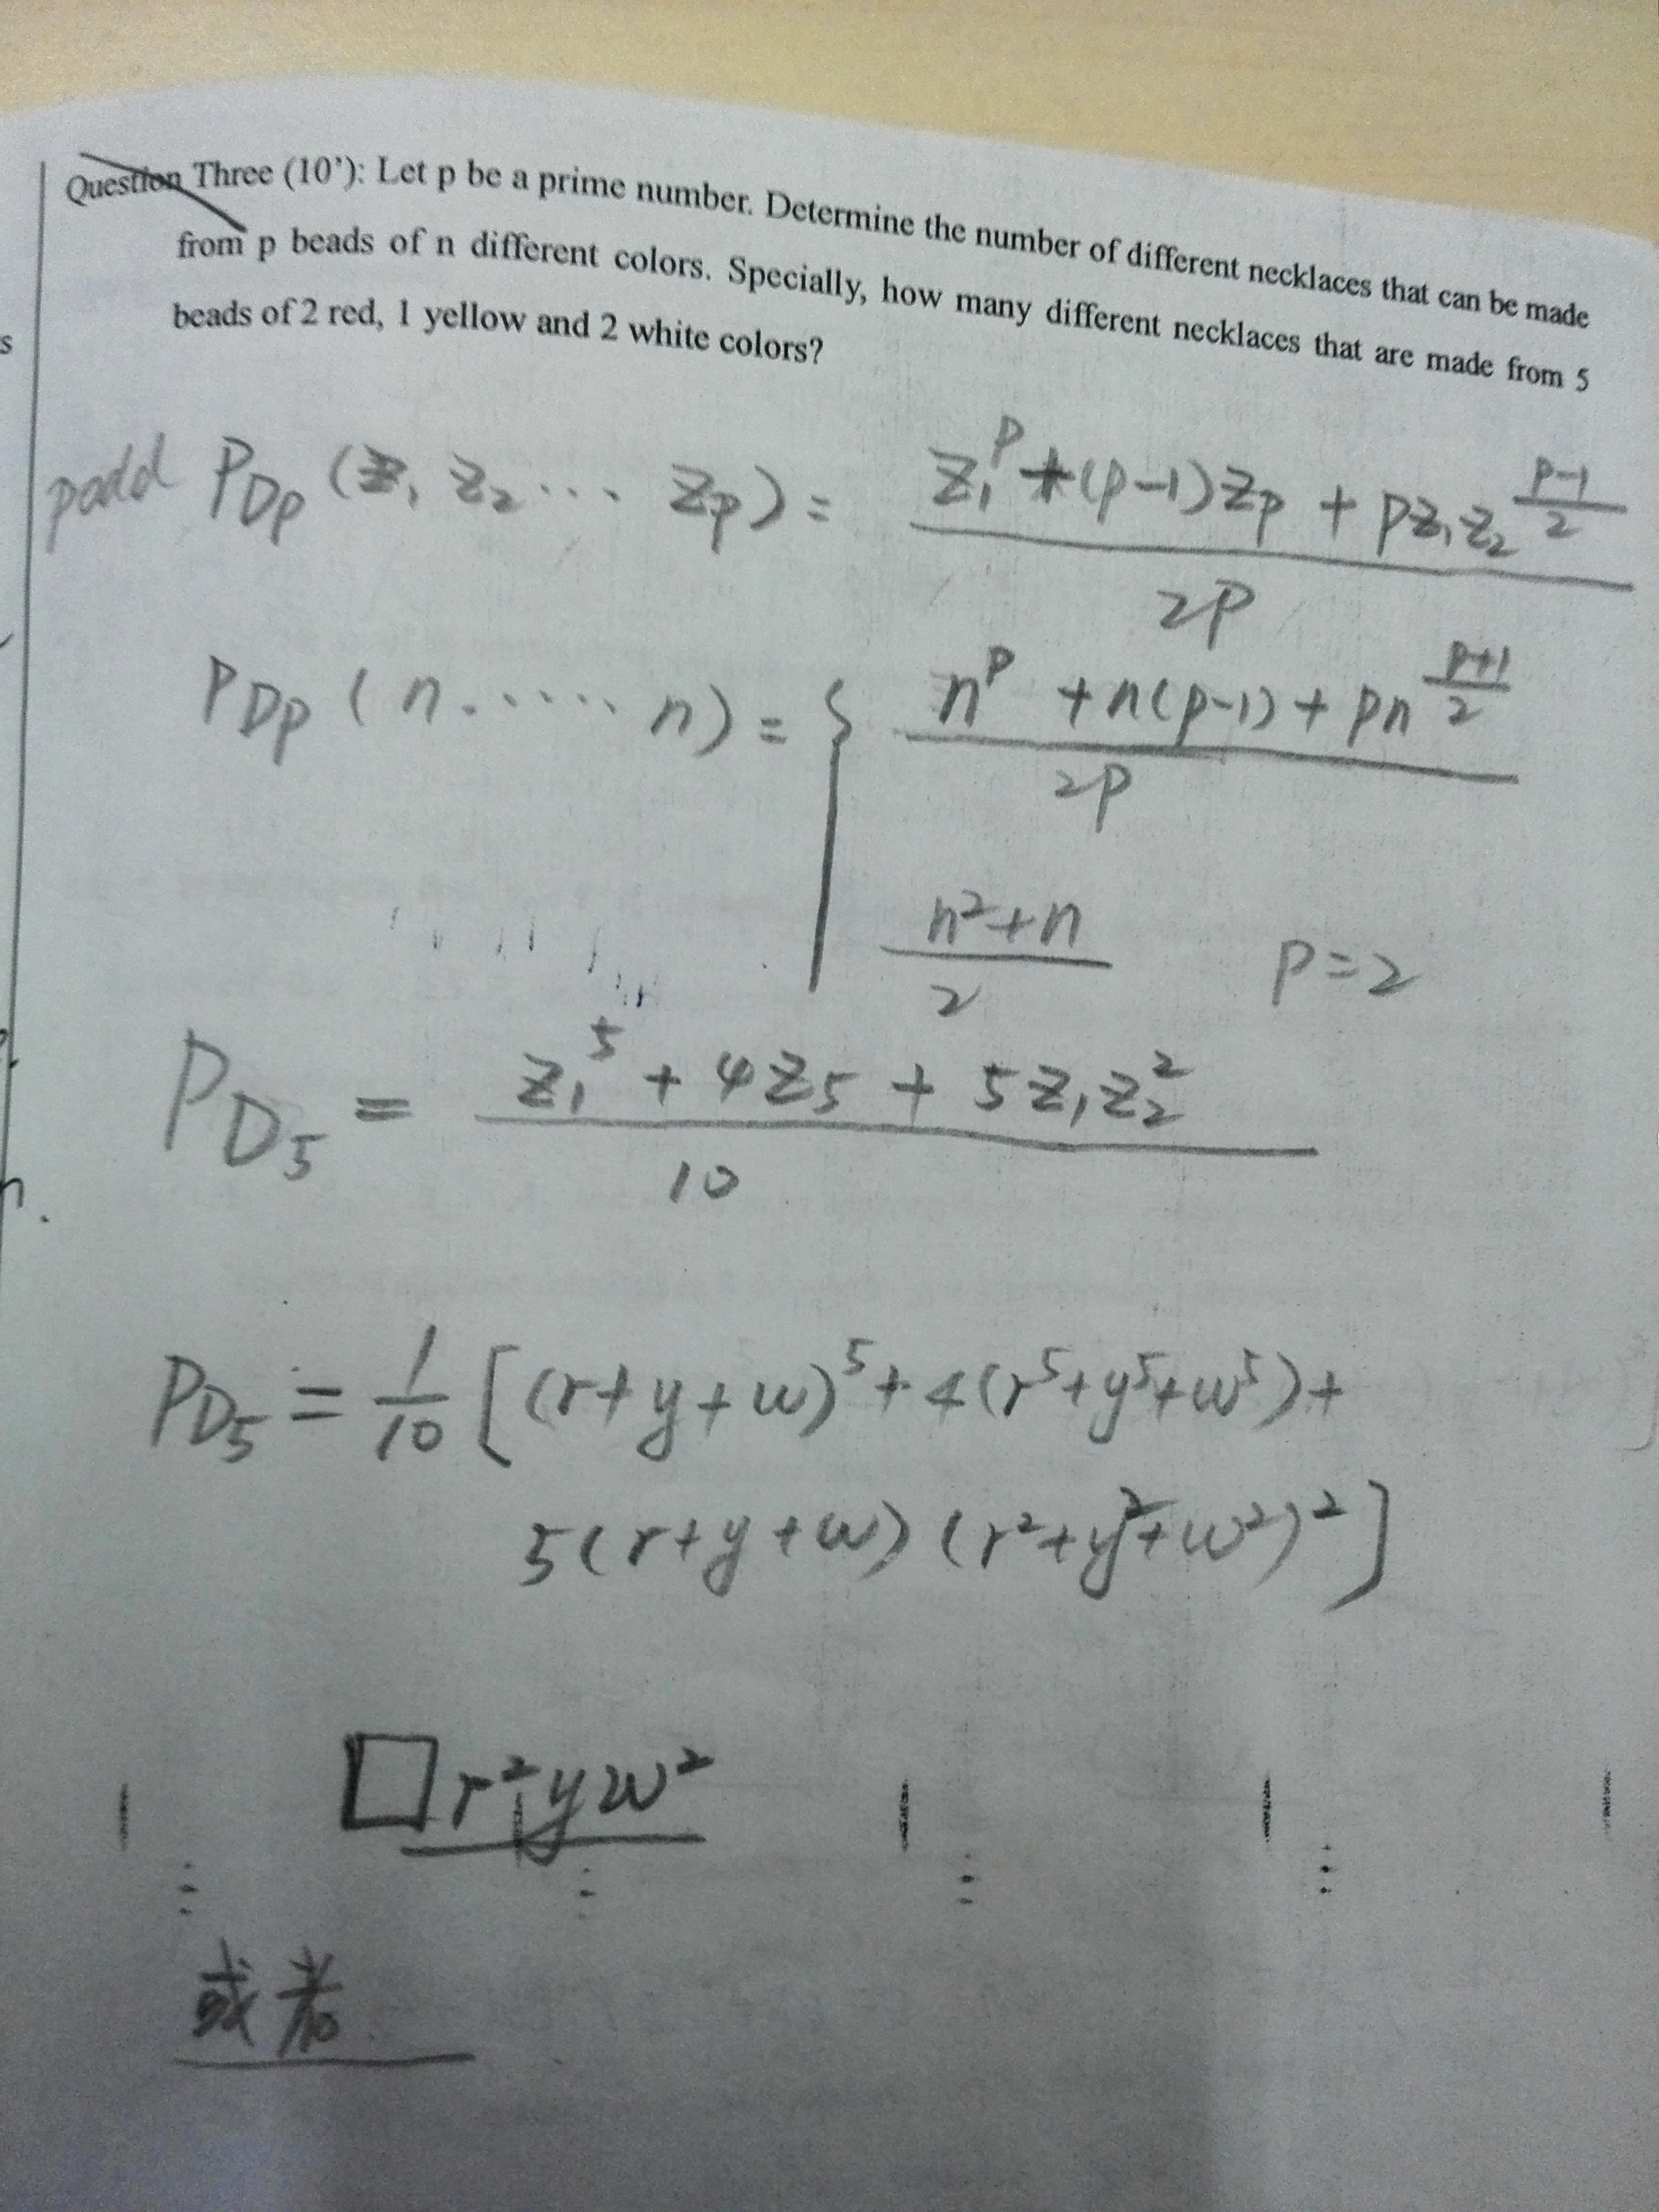 Question Three (10’): Let p be a prime number. Determine the number of different necklaces that can be made
from p beads of n different colors. Specially, how many different necklaces that are made from 5
beads of 2 red, 1 yellow and 2 white colors?
podd P_{Dp} (z_1 z_2 ... z_p) = \frac{z_1^p + (p-1)z_p + pz_1z_2^{\frac{p-1}{2}}}{2p}
P_{Dp} (n.....n) = { \frac{n^p + n(p-1) + pn^{\frac{p+1}{2}}}{2p}
\frac{n^2+n}{2} p=2
P_{D_5} = \frac{z_1^5 + 4z_5 + 5z_1z_2^2}{10}
P_{D_5} = \frac{1}{10} [(r+y+w)^5 + 4(r^5+y^5+w^5) +
5(r+y+w) (r^2+y^2+w^2)^2]
□ r^2yw^2
或者